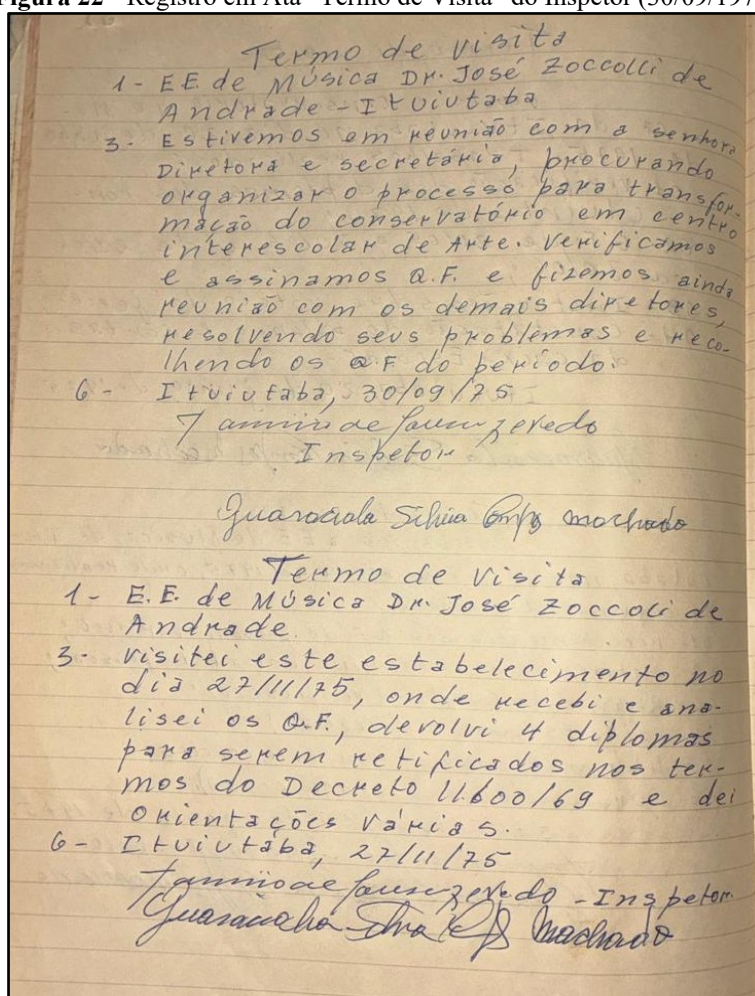 Figura 22 - Registro em Ata "Termo de Visita" do Inspetor (30/09/197
Termo de visita
1- E E. de Música Dr. José Zoccolli de
Andrade - Ituiutaba
3- Estivemos em reunião com a senhora
Diretora e secretária, procurando
organizar o processo para transfor-
mação do conservatório em centro
interescolar de Arte. Verificamos
e assinamos Q.F. e fizemos ainda
reunião com os demais diretores,
resolvendo seus problemas e reco-
lhendo os Q.F do período.
6- Ituiutaba, 30/09/75
Inspetor
Silvia machado
Termo de Visita
1- E.E. de Música Dr. José Zoccoli de
Andrade.
3- visitei este estabelecimento no
dia 27/11/75, onde recebi e ana-
lisei os Q.F., devolvi 4 diplomas
para serem retificados nos ter-
mos do Decreto 11600/69 e dei
orientações várias.
6- Ituiutaba, 27/11/75
- Inspetor
Silva Machado